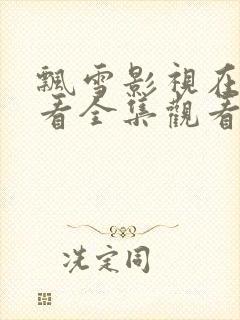 飄雪影視在
看全集觀看
冼定同